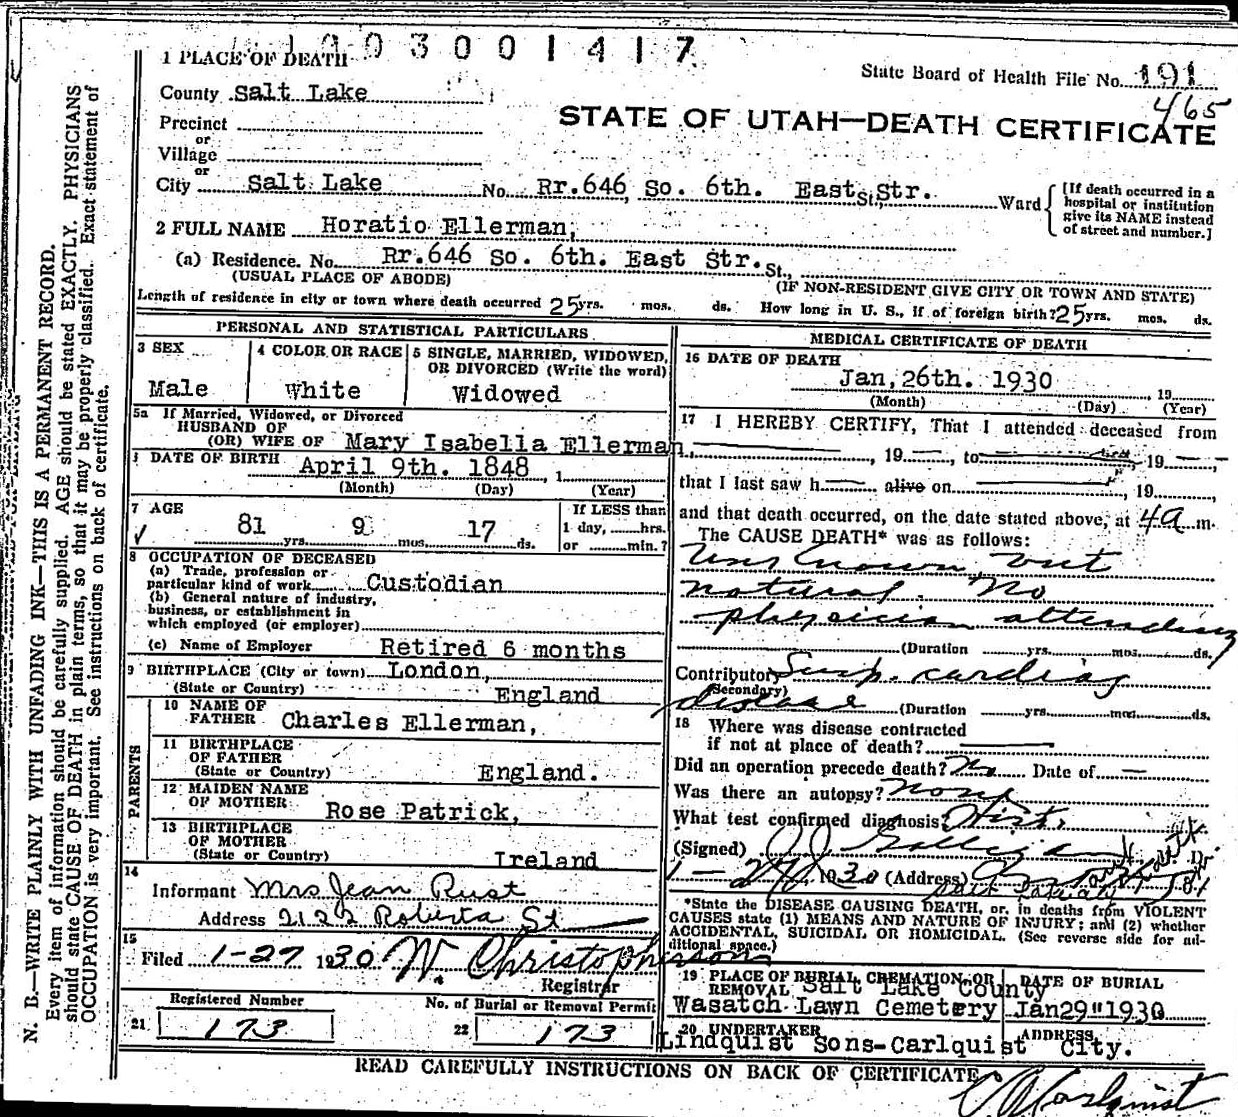 1003001417
1 PLACE OF DEATH
State Board of Health File No. 191
465
County Salt Lake
STATE OF UTAH—DEATH CERTIFICATE
Precinct
or
Village
or
City Salt Lake No. Rr.646 So. 6th. East St., Str. Ward
[If death occurred in a hospital or institution give its NAME instead of street and number.]
2 FULL NAME Horatio Ellerman,
(a) Residence. No. Rr.646 So. 6th. East Str. St.,
(USUAL PLACE OF ABODE) (IF NON-RESIDENT GIVE CITY OR TOWN AND STATE)
Length of residence in city or town where death occurred 25 yrs. mos. ds. How long in U. S., if of foreign birth? 25 yrs. mos. ds.
PERSONAL AND STATISTICAL PARTICULARS
3 SEX
Male
4 COLOR OR RACE
White
5 SINGLE, MARRIED, WIDOWED,
OR DIVORCED (Write the word)
Widowed
5a If Married, Widowed, or Divorced
HUSBAND OF
(OR) WIFE OF Mary Isabella Ellerman,
DATE OF BIRTH April 9th. 1848, 1
(Month) (Day) (Year)
7 AGE
81 yrs. 9 mos. 17 ds.
If LESS than
1 day, hrs.
or min.?
8 OCCUPATION OF DECEASED
(a) Trade, profession or
particular kind of work Custodian
(b) General nature of industry,
business, or establishment in
which employed (or employer)
(c) Name of Employer Retired 6 months
9 BIRTHPLACE (City or town) London,
(State or Country) England
PARENTS
10 NAME OF
FATHER Charles Ellerman,
11 BIRTHPLACE
OF FATHER
(State or Country) England.
12 MAIDEN NAME
OF MOTHER Rose Patrick,
13 BIRTHPLACE
OF MOTHER
(State or Country) Ireland
14
Informant Mrs Jean Rust
Address 2122 Roberta St
15
Filed 1-27 1930 W. Christopherson
Registrar
Registered Number No. of Burial or Removal Permit
21 173 22 173
MEDICAL CERTIFICATE OF DEATH
16 DATE OF DEATH
Jan, 26th. 1930 19
(Month) (Day) (Year)
17 I HEREBY CERTIFY, That I attended deceased from
, 19 , to , 19
that I last saw h alive on , 19 ,
and that death occurred, on the date stated above, at 4 a m.
The CAUSE DEATH* was as follows:
Unknown, but
natural. No
physician attending
(Duration yrs. mos. ds.
Contributory Susp. cardiac
(Secondary)
disease (Duration yrs. mos. ds.
18 Where was disease contracted
if not at place of death?
Did an operation precede death? No Date of —
Was there an autopsy? none
What test confirmed diagnosis Hist.
(Signed) J J Galligan
1-27, 1930 (Address)
*State the DISEASE CAUSING DEATH, or, in deaths from VIOLENT
CAUSES state (1) MEANS AND NATURE OF INJURY; and (2) whether
ACCIDENTAL, SUICIDAL OR HOMICIDAL. (See reverse side for ad-
ditional space.)
19 PLACE OF BURIAL, CREMATION, OR
REMOVAL Salt Lake County
Wasatch Lawn Cemetery
DATE OF BURIAL
Jan 29" 1930
20 UNDERTAKER
Lindquist Sons-Carlquist
ADDRESS
City.
READ CAREFULLY INSTRUCTIONS ON BACK OF CERTIFICATE
Carlquist
N. B.—WRITE PLAINLY WITH UNFADING INK—THIS IS A PERMANENT RECORD.
Every item of information should be carefully supplied. AGE should be stated EXACTLY. PHYSICIANS
should state CAUSE OF DEATH in plain terms, so that it may be properly classified. Exact statement of
OCCUPATION is very important. See instructions on back of certificate.